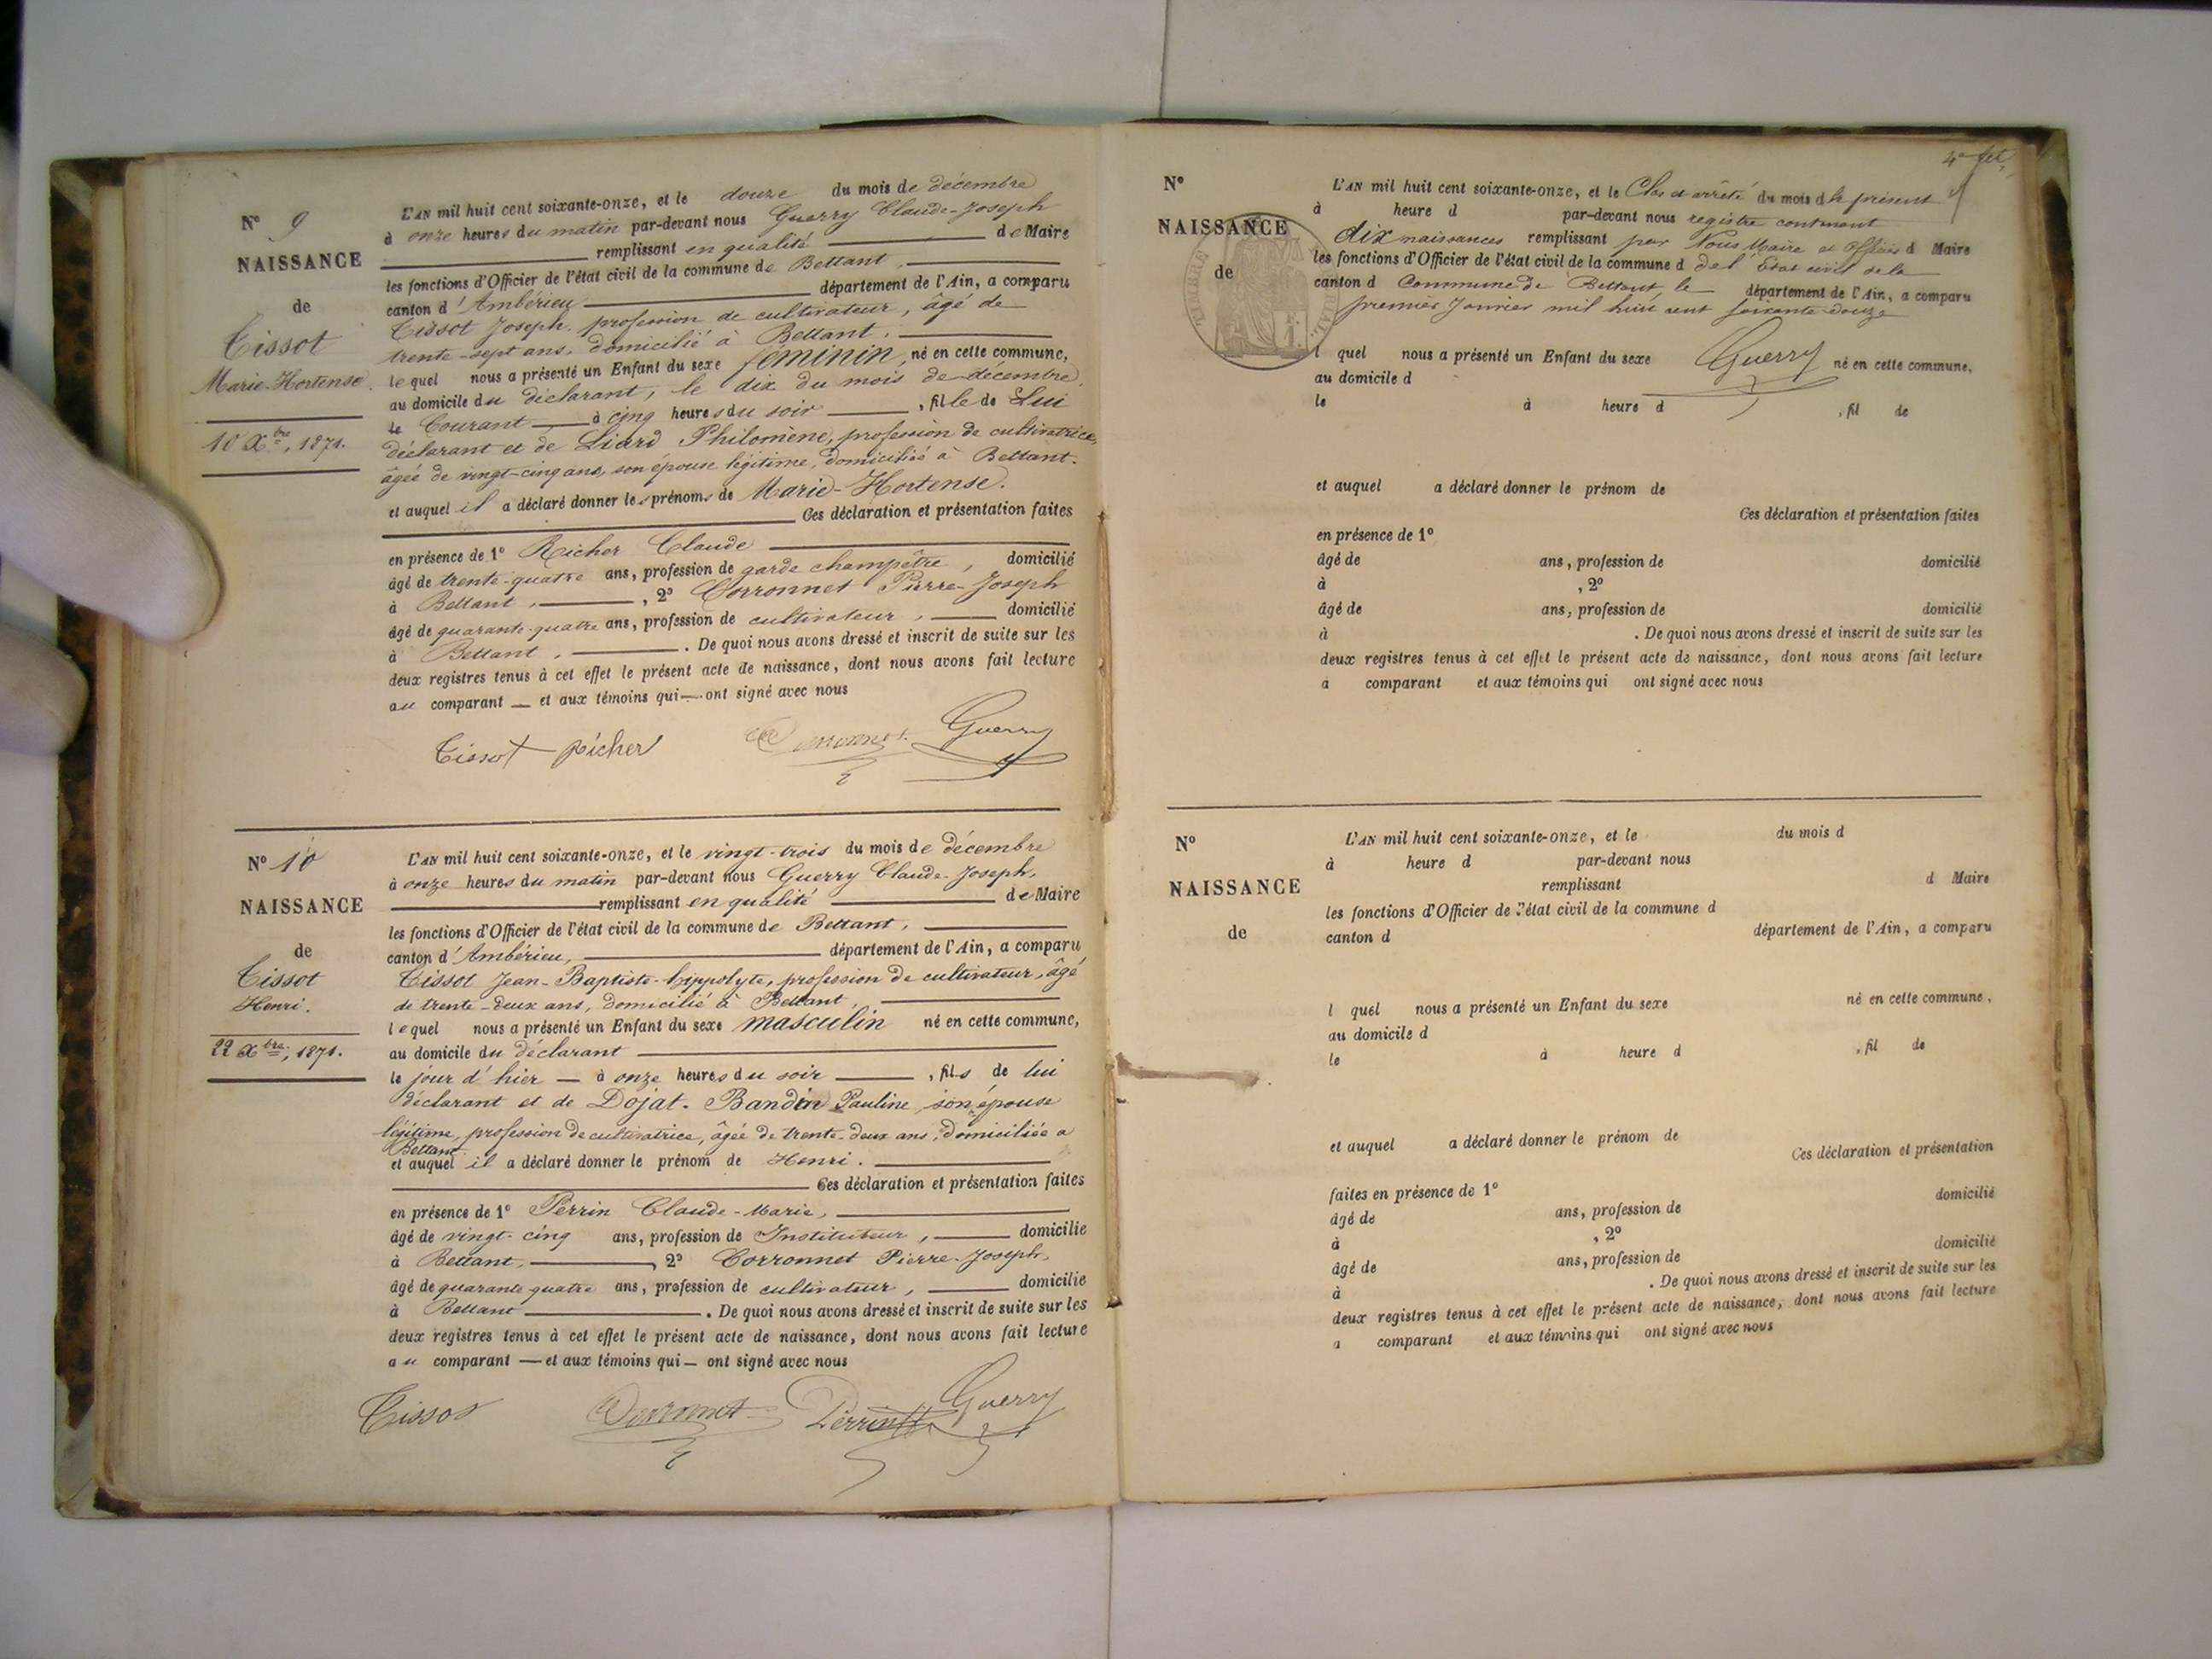 N° 9
NAISSANCE
de
Tissot
Marie-Hortense.
10 Xbre, 1871.
L'AN mil huit cent soixante-onze, et le douze du mois de décembre
à onze heures du matin par-devant nous Guerry Claude-Joseph
remplissant en qualité de Maire
les fonctions d'Officier de l'état civil de la commune de Bettant,
canton d'Ambérieu département de l'Ain, a comparu
Tissot Joseph, profession de cultivateur, âgé de
trente-sept ans, domicilié à Bettant,
lequel nous a présenté un Enfant du sexe féminin, né en cette commune,
au domicile du déclarant, le dix du mois de décembre,
le Courant à cinq heures du soir, fille de Lui
déclarant et de Liard Philomène, profession de cultivatrice,
âgée de vingt-cinq ans, son épouse légitime, domiciliée à Bettant.
et auquel il a déclaré donner les prénoms de Marie-Hortense.
Ces déclaration et présentation faites
en présence de 1° Richer Claude
âgé de trente-quatre ans, profession de garde champêtre, domicilié
à Bettant, , 2° Corronnet Pierre-Joseph
âgé de quarante-quatre ans, profession de cultivateur, domicilié
à Bettant, . De quoi nous avons dressé et inscrit de suite sur les
deux registres tenus à cet effet le présent acte de naissance, dont nous avons fait lecture
au comparant — et aux témoins qui — ont signé avec nous
Tissot Richer Corronnet Guerry
N° 10
NAISSANCE
de
Tissot
Henri.
22 Xbre, 1871.
L'AN mil huit cent soixante-onze, et le vingt-trois du mois de décembre
à onze heures du matin par-devant nous Guerry Claude-Joseph,
remplissant en qualité de Maire
les fonctions d'Officier de l'état civil de la commune de Bettant,
canton d'Ambérieu, département de l'Ain, a comparu
Tissot Jean-Baptiste-hippolyte, profession de cultivateur, âgé
de trente-deux ans, domicilié à Bettant,
lequel nous a présenté un Enfant du sexe masculin né en cette commune,
au domicile du déclarant
le jour d'hier — à onze heures du soir, fils de lui
déclarant et de Dojat-Bandin Pauline, son épouse
légitime, profession de cultivatrice, âgée de trente-deux ans, domiciliée a
Bettant.
et auquel il a déclaré donner le prénom de Henri.
Ces déclaration et présentation faites
en présence de 1° Perrin Claude-Marie,
âgé de vingt-cinq ans, profession de Instituteur, domicilié
à Bettant, , 2° Corronnet Pierre-Joseph,
âgé de quarante quatre ans, profession de cultivateur, domicilié
à Bettant . De quoi nous avons dressé et inscrit de suite sur les
deux registres tenus à cet effet le présent acte de naissance, dont nous avons fait lecture
au comparant — et aux témoins qui — ont signé avec nous
Tissot Corronnet Perrin Guerry
4e
N°
NAISSANCE
de
TIMBRE
L'AN mil huit cent soixante-onze, et le Clos et arrêté du mois d le présent
à heure d par-devant nous registre contenant
dix naissances remplissant par Nous Maire et Officier d Maire
les fonctions d'Officier de l'état civil de la commune d de l'État civil de la
canton d Commune de Bettant, le département de l'Ain, a comparu
premier Janvier mil huit cent soixante-douze
l quel nous a présenté un Enfant du sexe Guerry né en cette commune,
au domicile d
le à heure d , fil de
et auquel a déclaré donner le prénom de
Ces déclaration et présentation faites
en présence de 1°
âgé de ans, profession de domicilié
à , 2°
âgé de ans, profession de domicilié
à . De quoi nous avons dressé et inscrit de suite sur les
deux registres tenus à cet effet le présent acte de naissance, dont nous avons fait lecture
a comparant et aux témoins qui ont signé avec nous
N°
NAISSANCE
de
L'AN mil huit cent soixante-onze, et le du mois d
à heure d par-devant nous
remplissant d Maire
les fonctions d'Officier de l'état civil de la commune d
canton d département de l'Ain, a comparu
l quel nous a présenté un Enfant du sexe né en cette commune,
au domicile d
le à heure d , fil de
et auquel a déclaré donner le prénom de
Ces déclaration et présentation
faites en présence de 1°
âgé de ans, profession de domicilié
à , 2°
âgé de ans, profession de domicilié
à . De quoi nous avons dressé et inscrit de suite sur les
deux registres tenus à cet effet le présent acte de naissance, dont nous avons fait lecture
a comparant et aux témoins qui ont signé avec nous